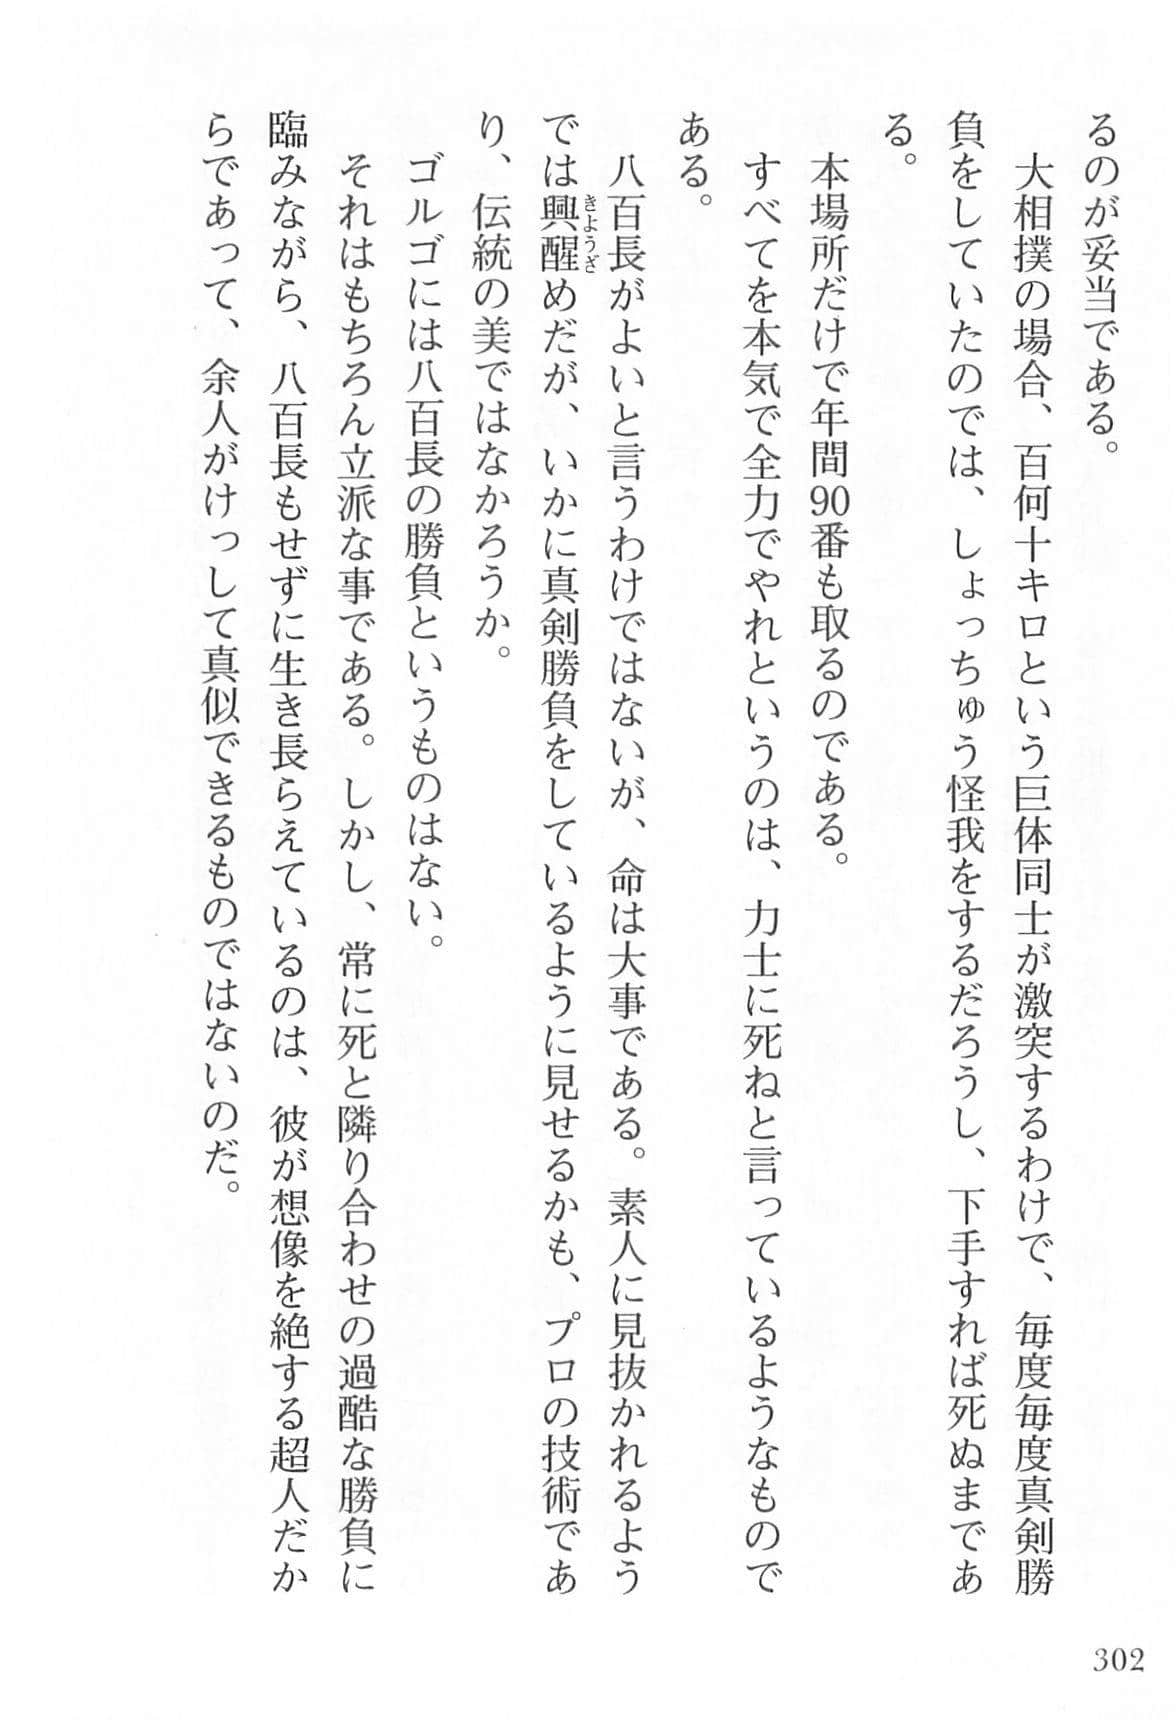 るのが妥当である。
　大相撲の場合、百何十キロという巨体同士が激突するわけで、毎度毎度真剣勝
負をしていたのでは、しょっちゅう怪我をするだろうし、下手すれば死ぬまであ
る。
　本場所だけで年間90番も取るのである。
　すべてを本気で全力でやれというのは、力士に死ねと言っているようなもので
ある。
　八百長がよいと言うわけではないが、命は大事である。素人に見抜かれるよう
では興醒めだが、いかに真剣勝負をしているように見せるかも、プロの技術であ
きようざ
り、伝統の美ではなかろうか。
　ゴルゴには八百長の勝負というものはない。
　それはもちろん立派な事である。しかし、常に死と隣り合わせの過酷な勝負に
臨みながら、八百長もせずに生き長らえているのは、彼が想像を絶する超人だか
らであって、余人がけっして真似できるものではないのだ。
302